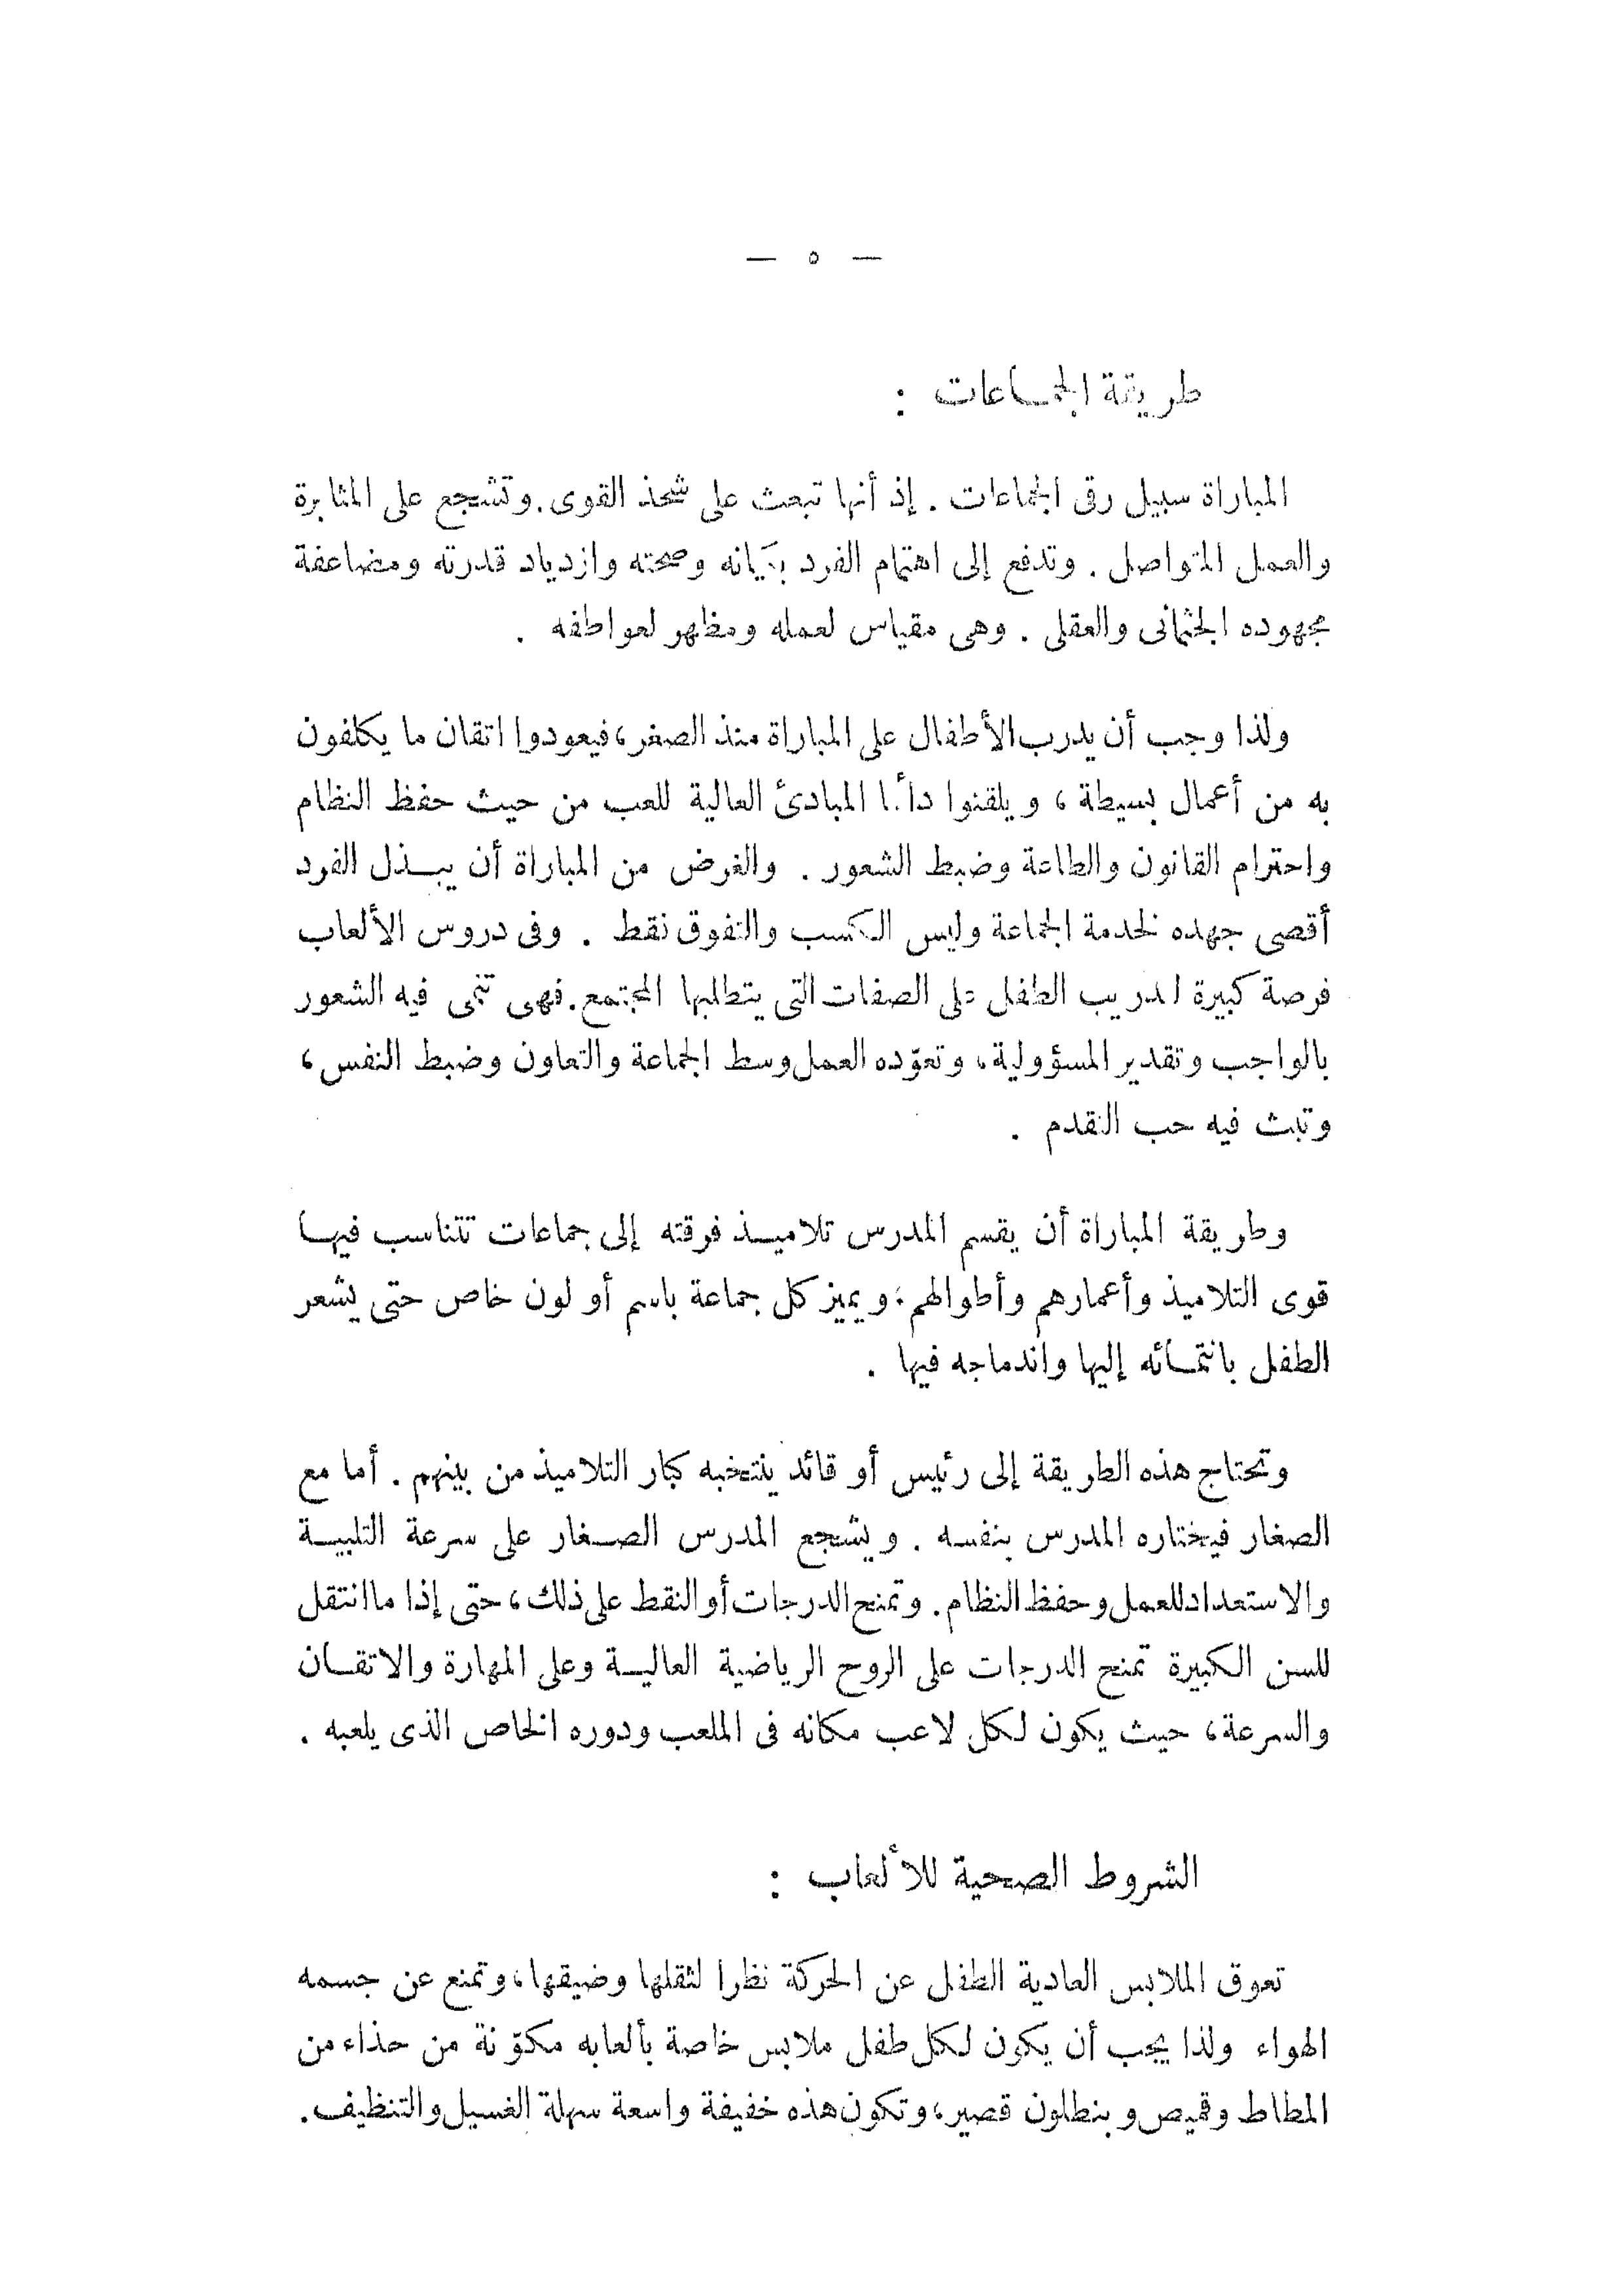 — ٥ —
طريقة الجماعات :
المباراة سبيل رقى الجماعات . إذ أنها تبعث على شحذ القوى . وتشجع على المثابرة
والعمل المتواصل . وتدفع إلى اهتمام الفرد بكيانه وصحته وازدياد قدرته ومضاعفة
مجهوده الجثمانى والعقلى . وهى مقياس لعمله ومظهر لعواطفه .
ولذا وجب أن يدرب الأطفال على المباراة منذ الصغر، فيعودوا اتقان ما يكلفون
به من أعمال بسيطة ، ويلقنوا دائما المبادئ العالية للعب من حيث حفظ النظام
واحترام القانون والطاعة وضبط الشعور . والغرض من المباراة أن يبذل الفرد
أقصى جهده لخدمة الجماعة وليس الكسب والتفوق فقط . وفى دروس الألعاب
فرصة كبيرة لتدريب الطفل على الصفات التى يتطلبها المجتمع . فهى تنمى فيه الشعور
بالواجب وتقدير المسؤولية، وتعوّده العمل وسط الجماعة والتعاون وضبط النفس ،
وتبث فيه حب التقدم .
وطريقة المباراة أن يقسم المدرس تلاميذ فرقته إلى جماعات تتناسب فيها
قوى التلاميذ وأعمارهم وأطوالهم، ويميز كل جماعة باسم أو لون خاص حتى يشعر
الطفل بانتمائه إليها واندماجه فيها .
وتحتاج هذه الطريقة إلى رئيس أو قائد ينتخبه كبار التلاميذ من بينهم . أما مع
الصغار فيختاره المدرس بنفسه . ويشجع المدرس الصغار على سرعة التلبية
والاستعداد للعمل وحفظ النظام . وتمنح الدرجات أو النقط على ذلك ، حتى إذا ما انتقل
للسن الكبيرة تمنح الدرجات على الروح الرياضية العالية وعلى المهارة والاتقان
والسرعة ، حيث يكون لكل لاعب مكانه فى الملعب ودوره الخاص الذى يلعبه .
الشروط الصحية للألعاب :
تعوق الملابس العادية الطفل عن الحركة نظرا لثقلها وضيقها، وتمنع عن جسمه
الهواء ولذا يجب أن يكون لكل طفل ملابس خاصة بألعابه مكوّنة من حذاء من
المطاط وقميص وبنطلون قصير، وتكون هذه خفيفة واسعة سهلة الغسيل والتنظيف .